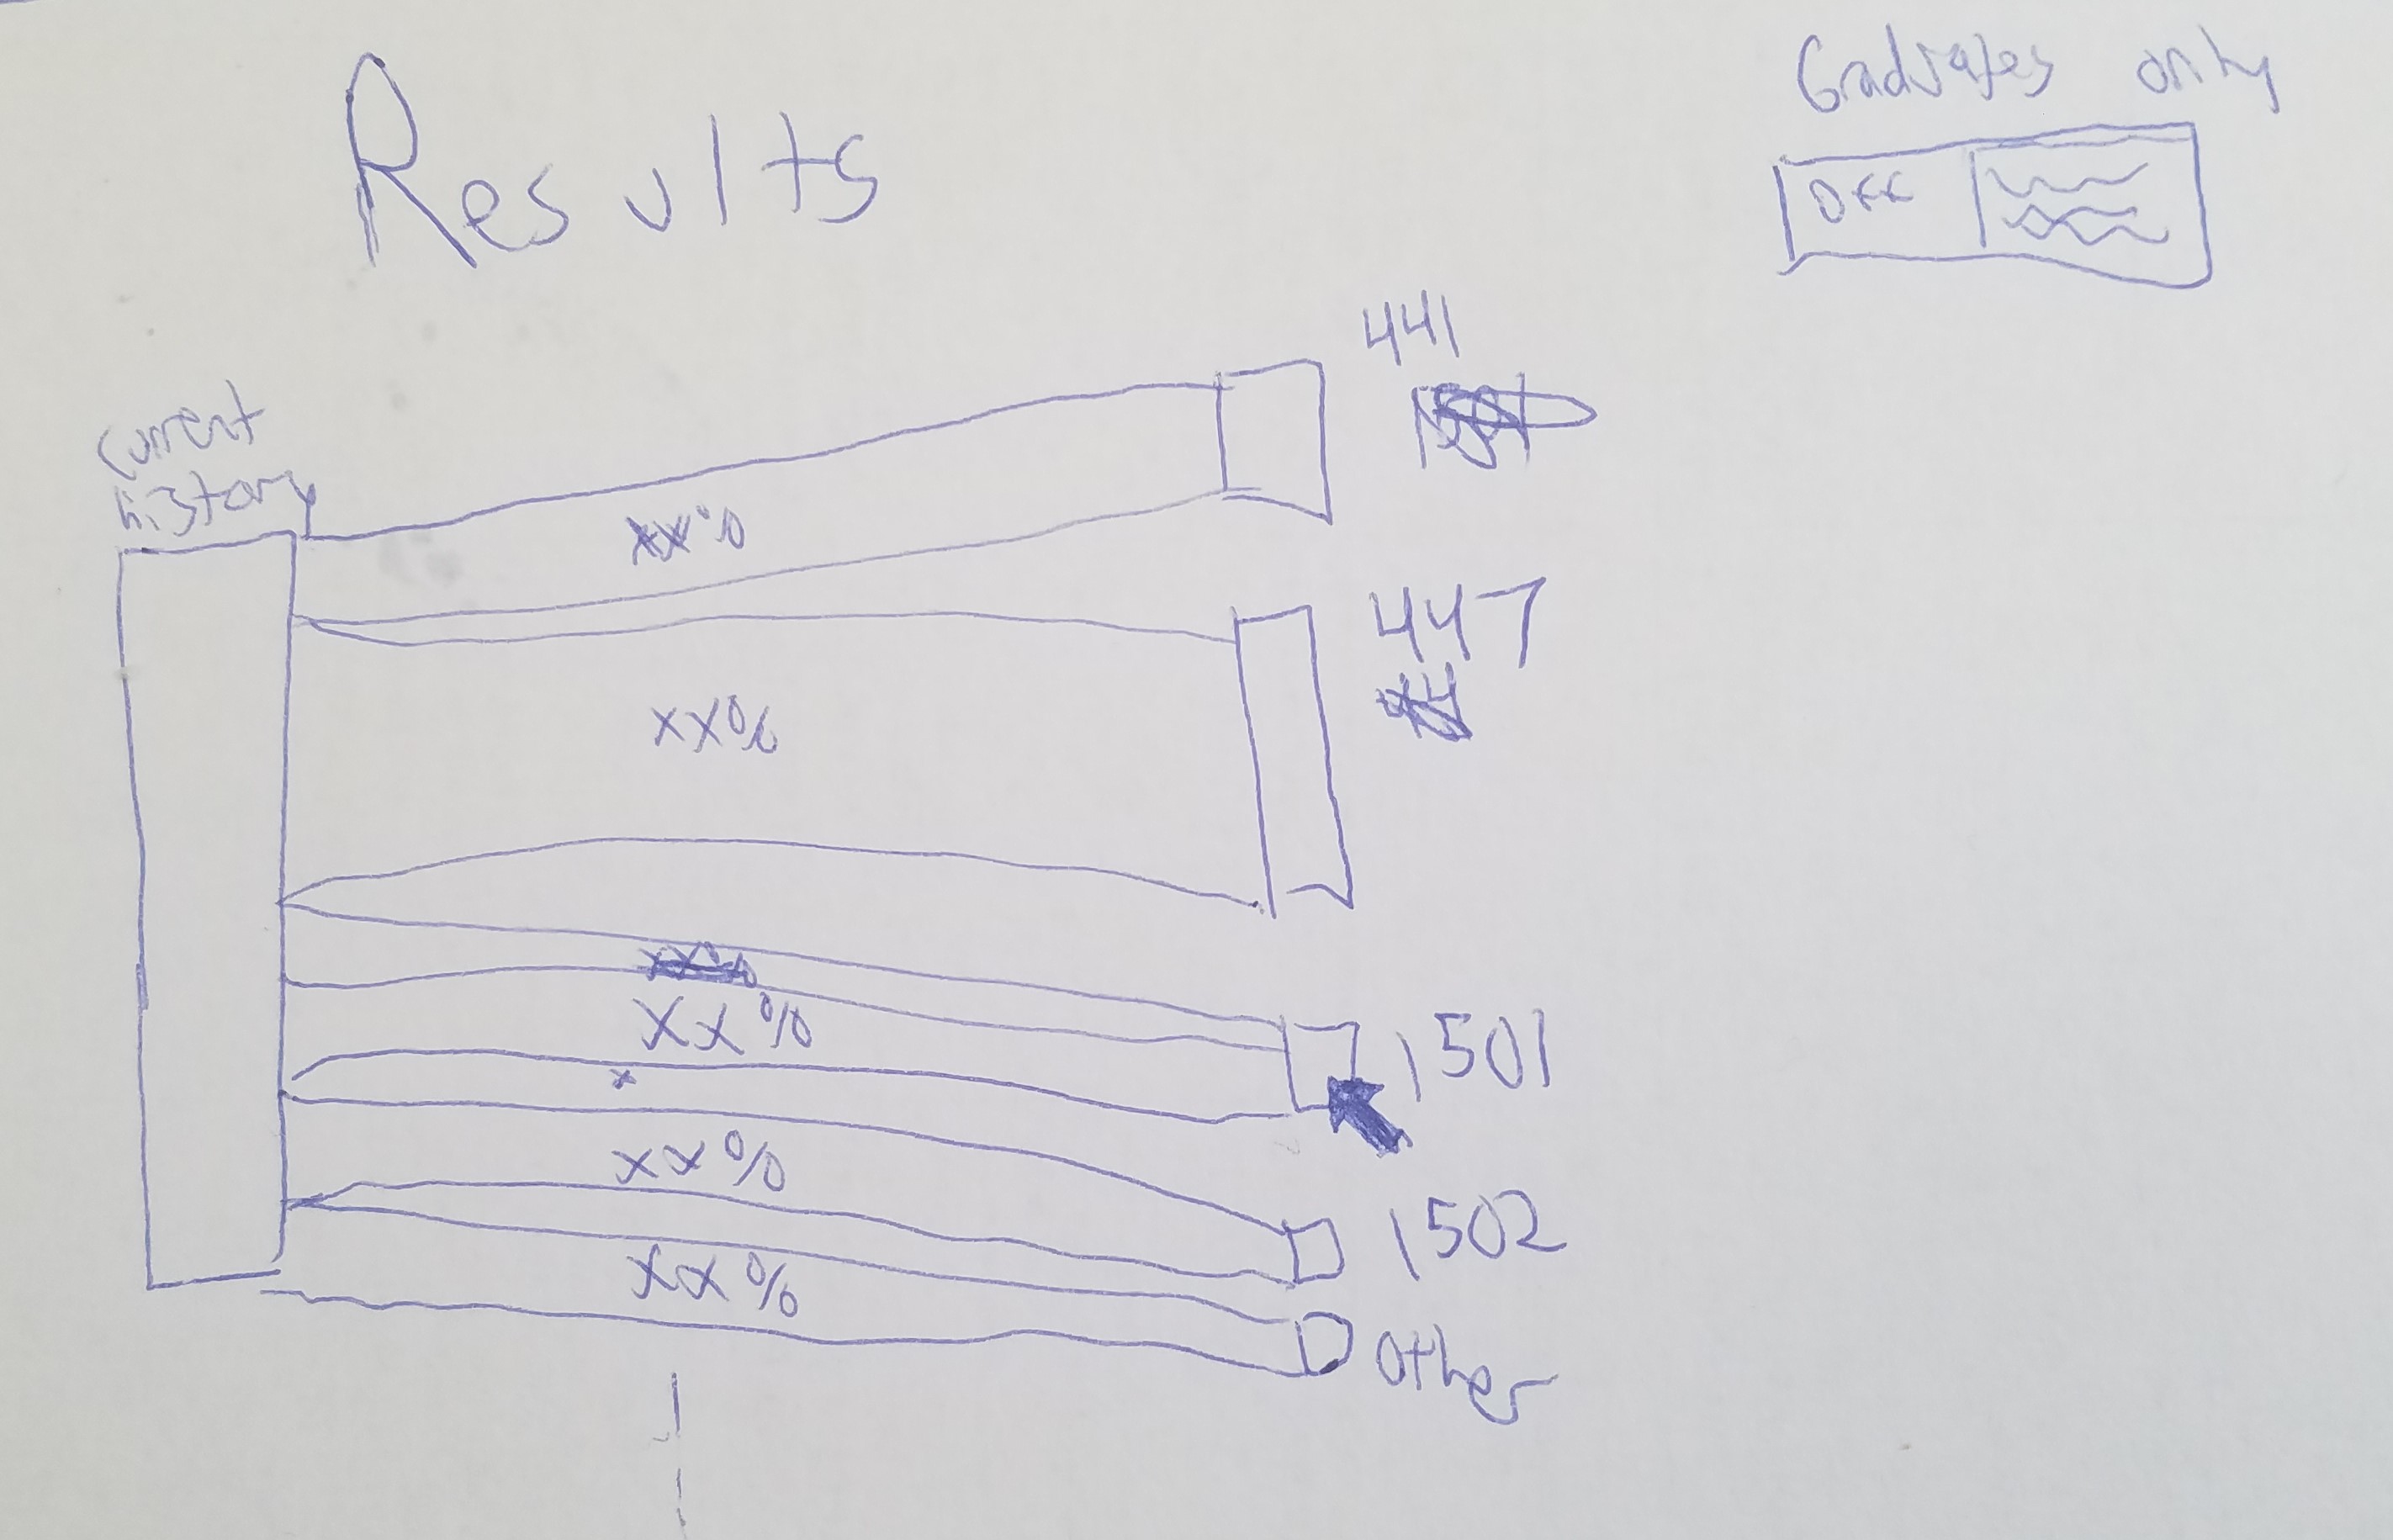 Results
Graduates only
OFF
current
history
441
xx%
447
xx%
xx%
1501
xx%
1502
xx%
other